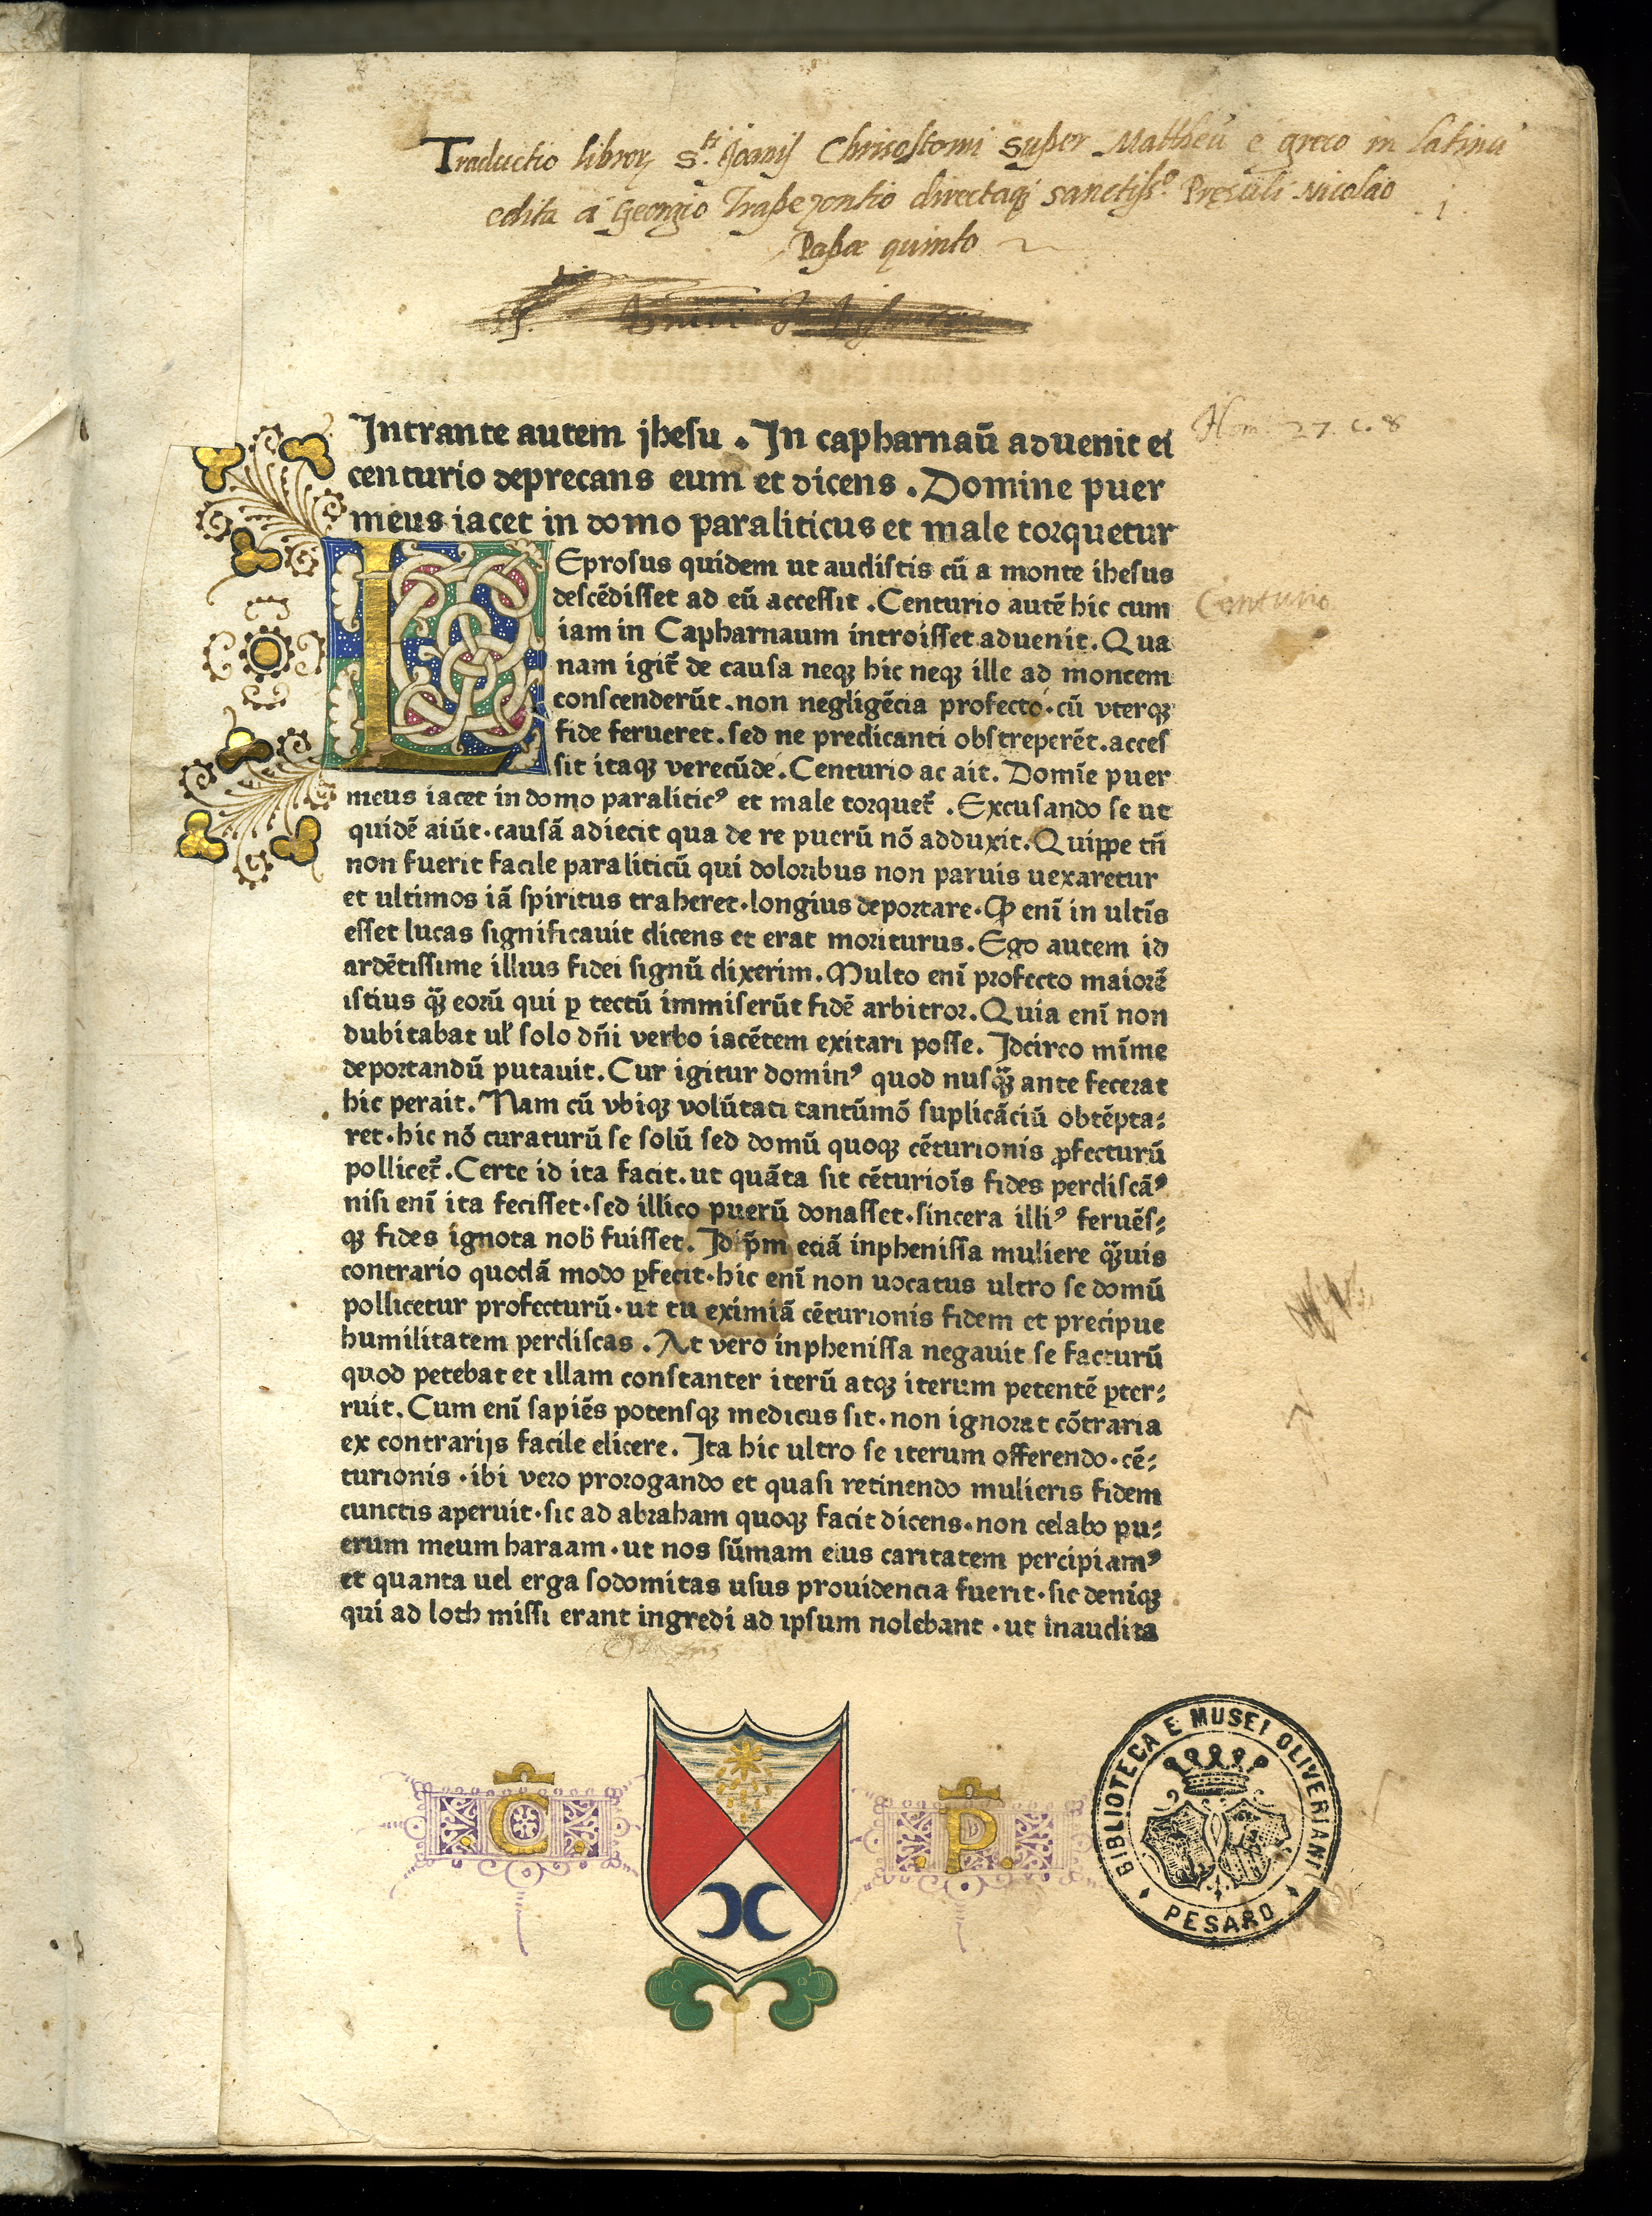 Traductio libroꝝ S.ti Joanis Chrisostomi super Mattheū e greco in latinū
edita a Georgio Trapezontio directaqꝫ sanctiss.o Presuli Nicolao
Papæ quinto
Intrante autem jhesu . In capharnaū aduenit ei
centurio deprecans eum et dicens . Domine puer
meus iacet in domo paraliticus et male torquetur
Hom. 27. c. 8
LEprosus quidem ut audistis cū a monte ihesus
descēdisset ad eū accessit . Centurio autē hic cum
Centurio
iam in Capharnaum introisset aduenit . Qua
nam igit᷑ de causa neqꝫ hic neqꝫ ille ad montem
conscenderūt . non negligēcia profecto . cū vterqꝫ
fide ferueret . sed ne predicanti obstreperēt . acces
sit itaqꝫ verecūde . Centurio ac ait . Domīe puer
meus iacet in domo paraliticꝰ et male torquet᷑ . Excusando se ut
quidē aiūt . causā adiecit qua de re puerū nō adduxit . Quippe tn̄
non fuerit facile paraliticū qui doloribus non paruis uexaretur
et ultimos iā spiritus traheret . longius deportare . Ꝙ enī in ultīs
esset lucas significauit dicens et erat moriturus . Ego autem id
ardētissime illius fidei signū dixerim . Multo enī profecto maiorē
istius qꝫ̄ eorū qui ꝑ tectū immiserūt fidē arbitror . Quia enī non
dubitabat ul̓ solo dn̄i verbo iacētem exitari posse . Idcirco mīme
deportandū putauit . Cur igitur dominꝰ quod nusqꝫ̄ ante fecerat
hic perait . Nam cū vbiqꝫ volūtati tantūmō suplicāciū obtēpta⸗
ret . hic nō curaturū se solū sed domū quoqꝫ cēturionis ꝓfecturū
pollicet᷑ . Certe id ita facit . ut quāta sit cēturioīs fides perdiscāꝰ
nisi enī ita fecisset . sed illico puerū donasset . sincera illiꝰ feruēs⸗
qꝫ fides ignota nob̄ fuisset . Id ip̄m eciā inphenissa muliere qꝫ̄uis
contrario quodā modo ꝑfecit . hic enī non uocatus ultro se domū
pollicetur profecturū . ut tu eximiā cēturionis fidem et precipue
humilitatem perdiscas . At vero inphenissa negauit se facturū
quod petebat et illam constanter iterū atqꝫ iterum petentē ꝑter⸗
ruit . Cum enī sapiēs potensqꝫ medicus sit . non ignorat cōtraria
ex contrarijs facile elicere . Ita hic ultro se iterum offerendo . cē⸗
turionis . ibi vero prorogando et quasi retinendo mulieris fidem
cunctis aperuit . sic ad abraham quoqꝫ facit dicens . non celabo pu⸗
erum meum haraam . ut nos sūmam eius caritatem percipiamꝰ
et quanta uel erga sodomitas usus prouidencia fuerit . sic deniqꝫ
qui ad loth missi erant ingredi ad ipsum nolebant . ut inaudita
. C . . P .
BIBLIOTECA E MUSEI OLIVERIANI
PESARO